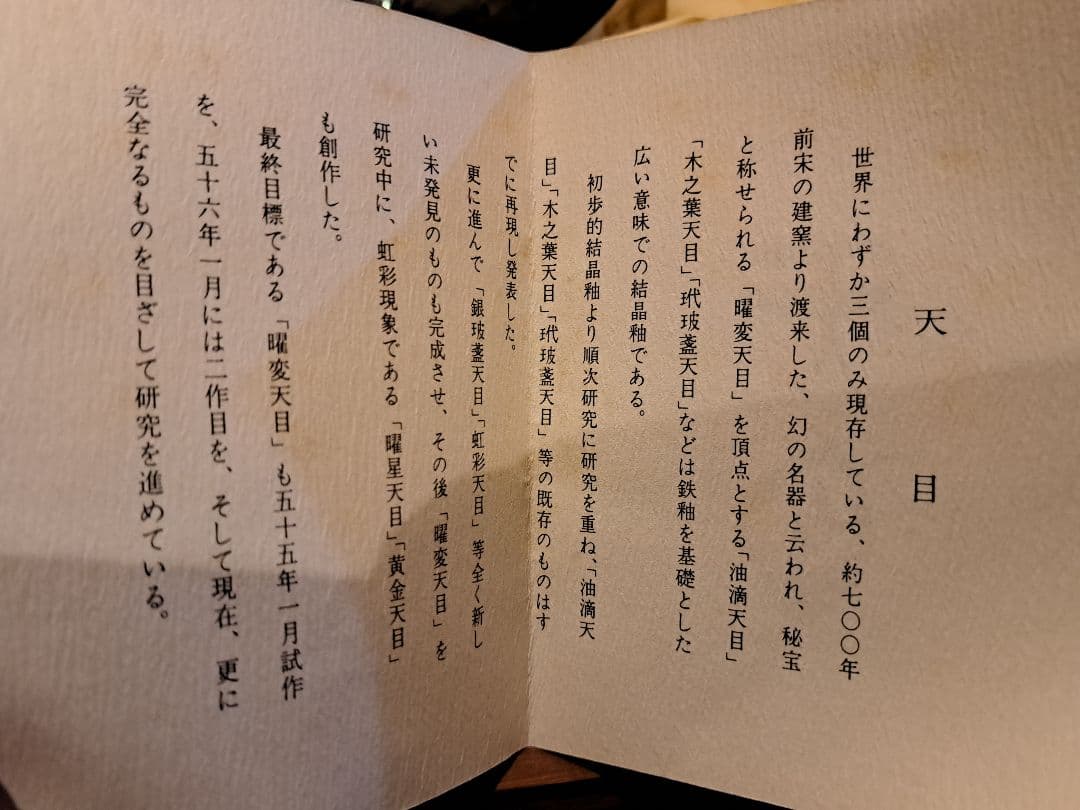 天目
世界にわずか三個のみ現存している、約七〇〇年
前宋の建窯より渡来した、幻の名器と云われ、秘宝
と称せられる「曜変天目」を頂点とする「油滴天目」
「木之葉天目」「玳玻盞天目」などは鉄釉を基礎とした
広い意味での結晶釉である。
初歩的結晶釉より順次研究に研究を重ね、「油滴天
目」「木之葉天目」「玳玻盞天目」等の既存のものはす
でに再現し発表した。
更に進んで「銀玻盞天目」「虹彩天目」等全く新し
い未発見のものも完成させ、その後「曜変天目」を
研究中に、虹彩現象である「曜星天目」「黄金天目」
も創作した。
最終目標である「曜変天目」も五十五年一月試作
を、五十六年一月には二作目を、そして現在、更に
完全なるものを目ざして研究を進めている。